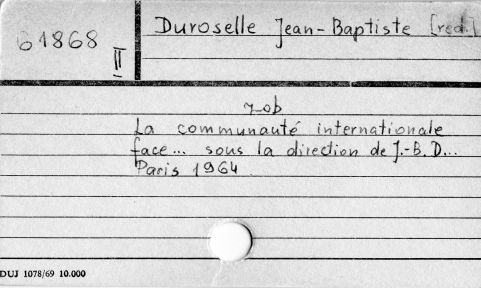 61868 II
Duroselle Jean-Baptiste [red.]
zob
La communauté internationale
face... sous la direction de J.-B. D...
Paris 1964
DUJ 1078/69 10.000